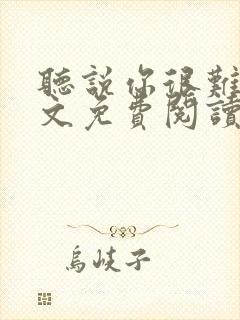 聽說你很難
文免費閱讀
烏歧子